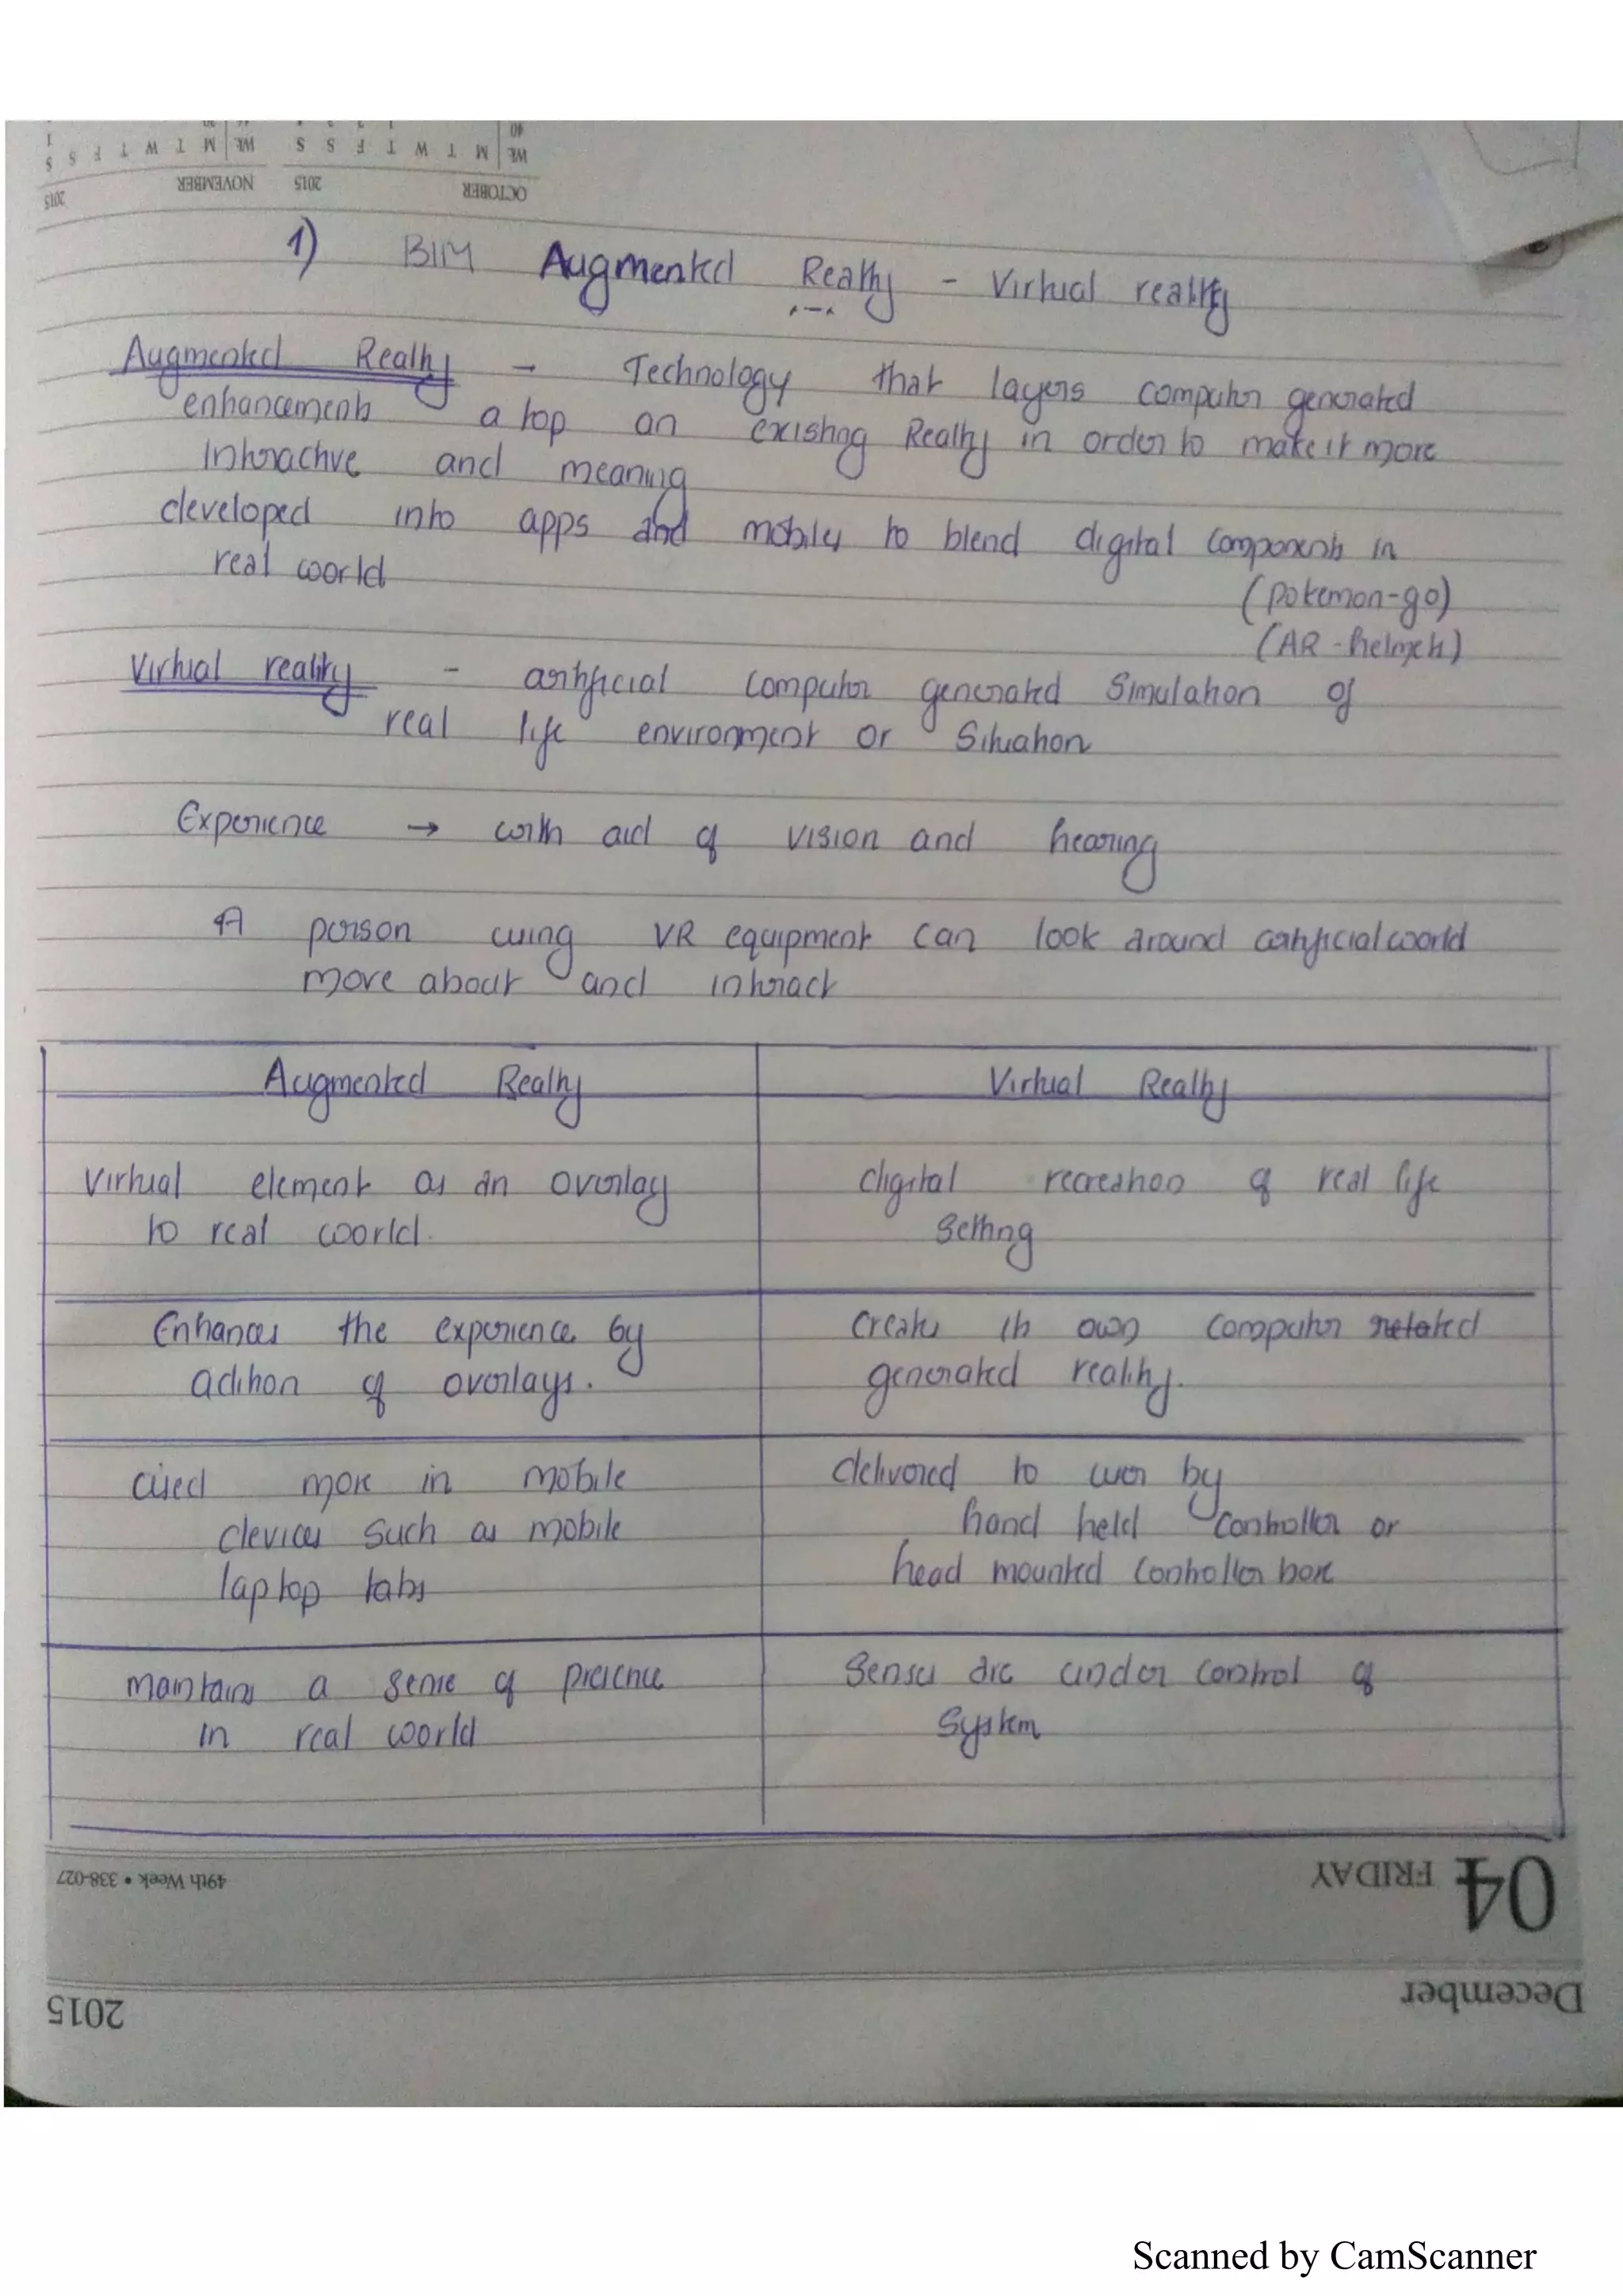 2015 NOVEMBER 2015 OCTOBER
S S F T W T M WK S S F T W T M WK
1) BIM Augmented Reality - Virtual reality
Augmented Reality - Technology that layers computer generated
enhancements a top an existing Reality in order to make it more
Interactive and meaning
developed into apps and mobiles to blend digital components in
real world
(pokemon-go)
(AR-helmets)
Virtual reality - artificial computer generated simulation of
real life environment or situation
Experience → with aid of vision and hearing
A person using VR equipment can look around artificial world
more about and interact
Augmented Reality
Virtual Reality
Virtual element as an overlay
to real world.
digital recreation of real life
setting
Enhances the experience by
adition of overlays.
creates its own computer related
generated reality.
used more in mobile
devices such as mobile
laptop tabs
delivered to user by
hand held controller or
head mounted controller box
maintains a sense of presence
in real world
Senses are under control of
System
49th Week • 338-027
04 FRIDAY
2015
December
Scanned by CamScanner